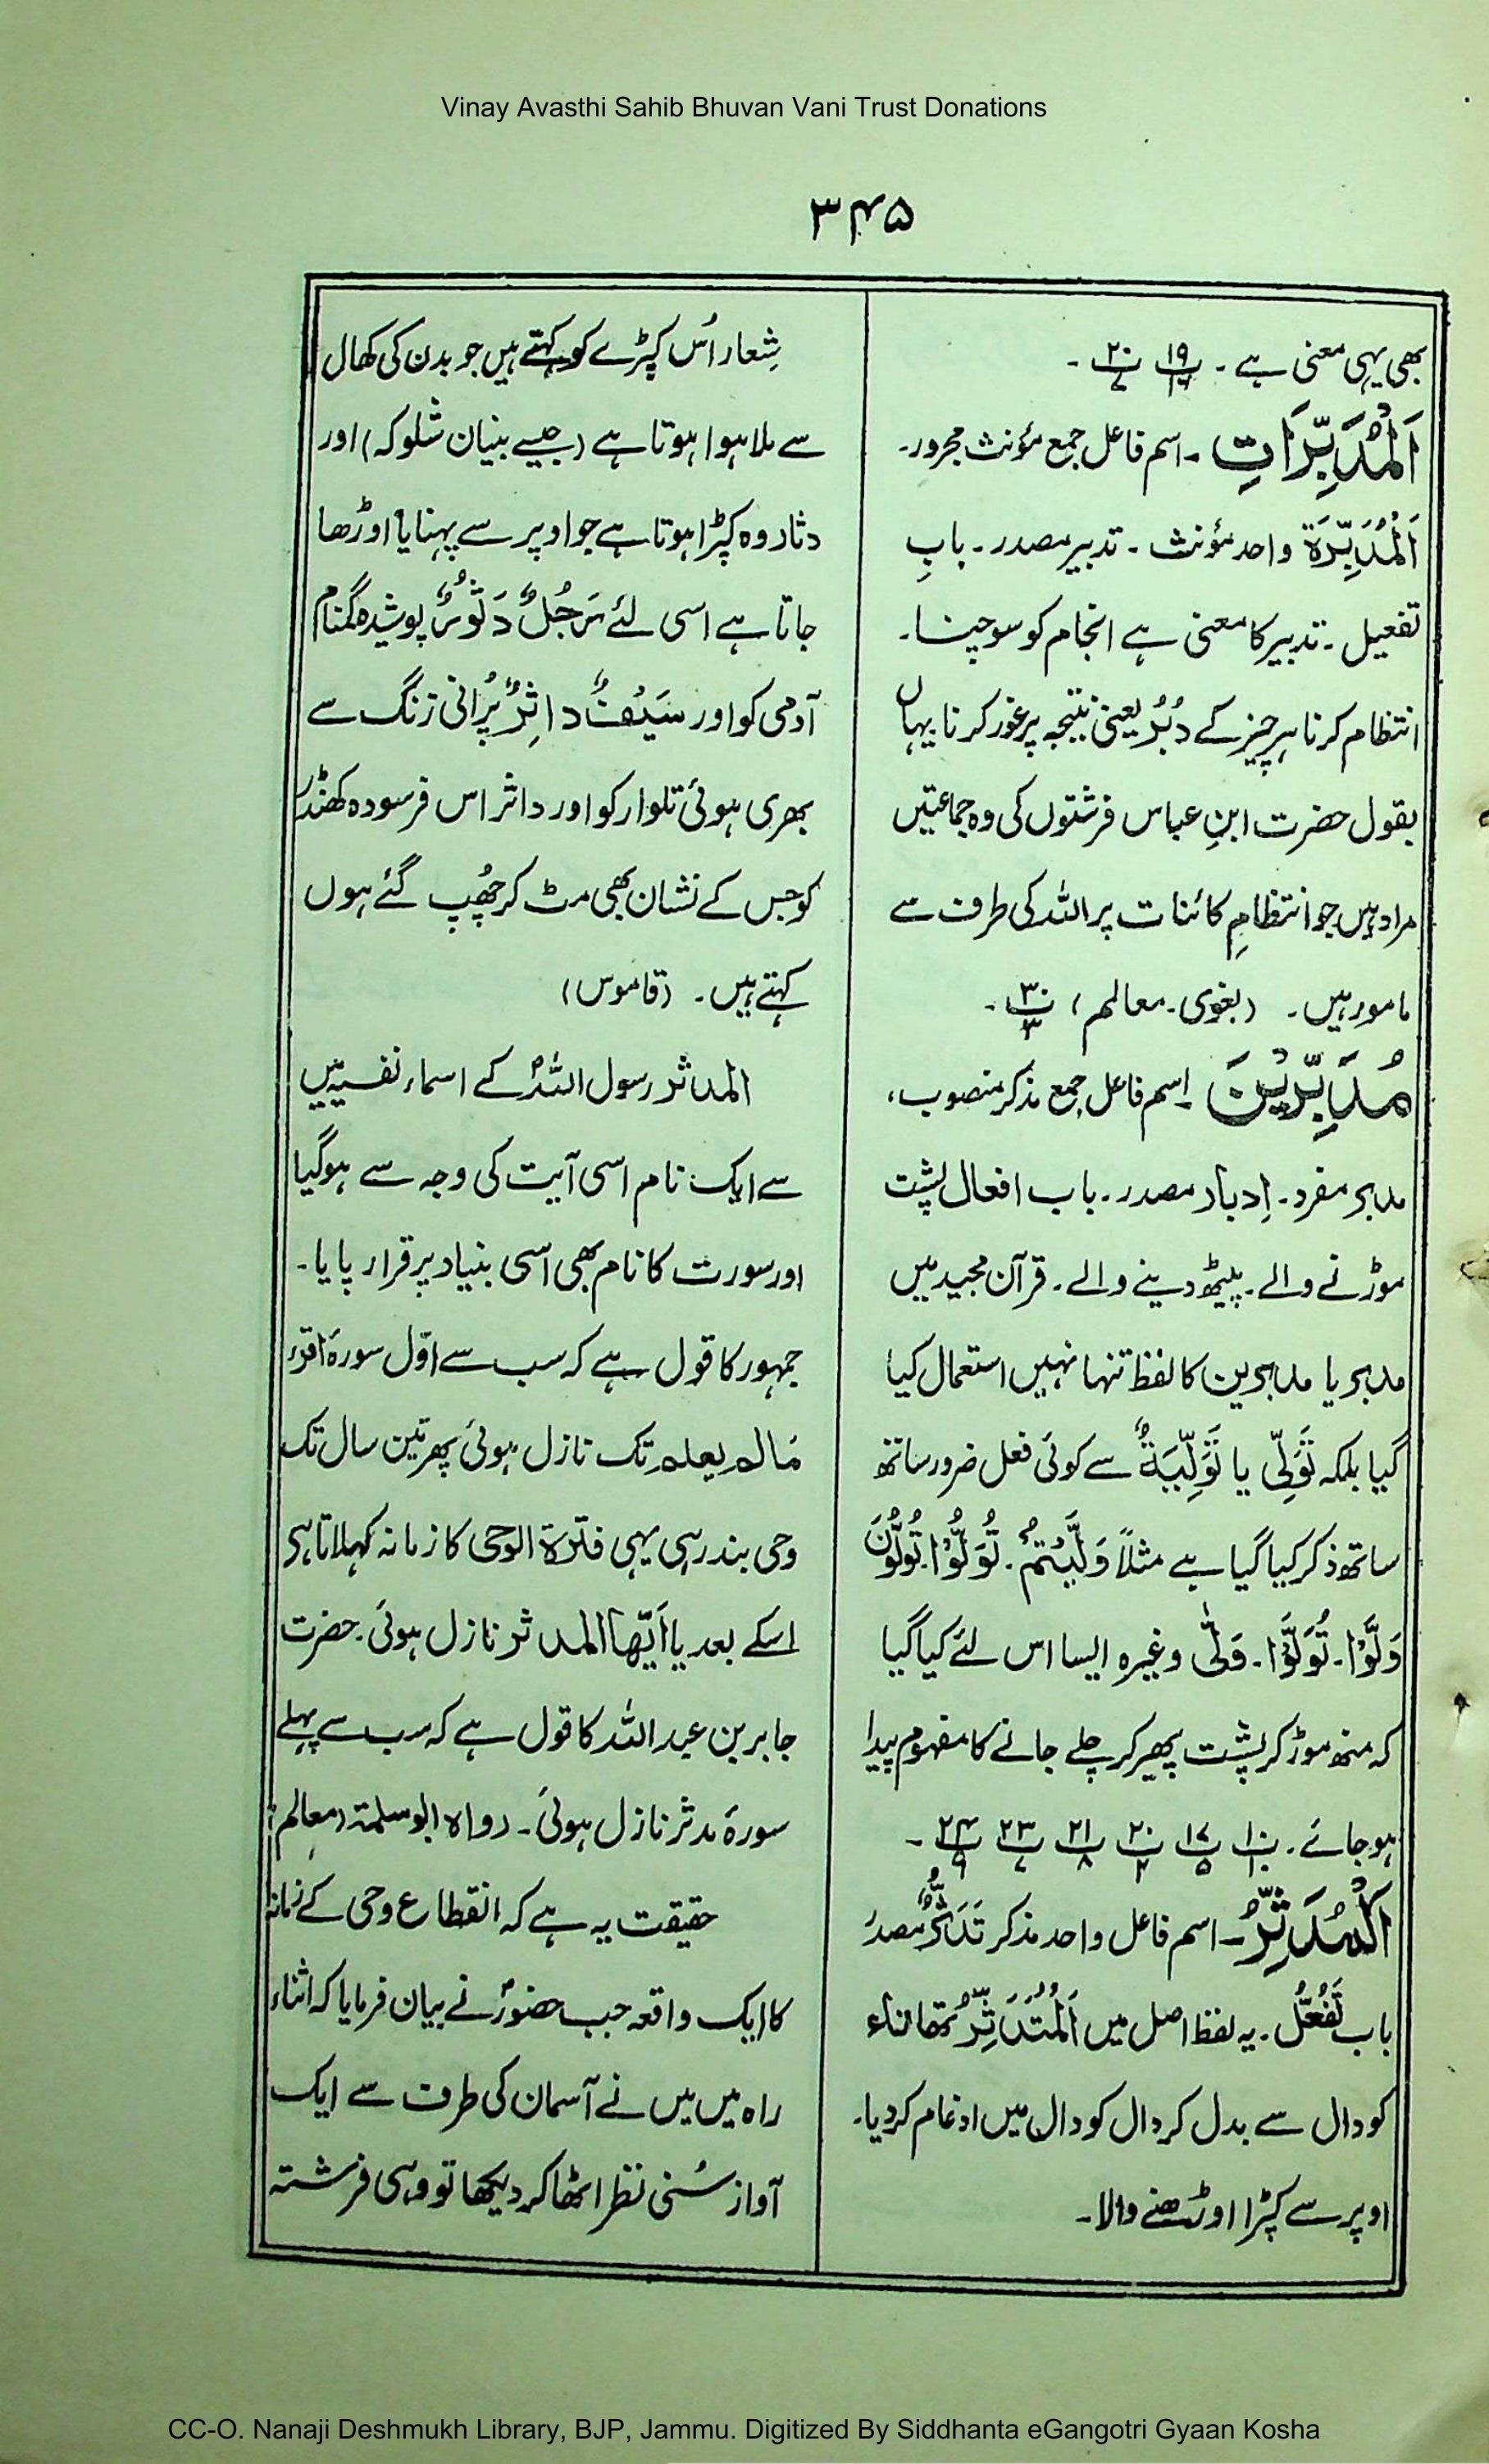 Vinay Avasthi Sahib Bhuvan Vani Trust Donations
۳۴۵
بھی یہی معنی ہے ۔ ۱۹ ۲۰ ۔
اَلْمُدَبِّرَاتِ ۔ اسم فاعل جمع مؤنث مجرور۔
اَلْمُدَبِّرَةُ واحد مؤنث ۔ تدبیر مصدر ۔ بابِ
تفعیل ۔ تدبیر کا معنی ہے انجام کو سوچنا۔
انتظام کرنا ہر چیز کے دُبُر یعنی نتیجہ پر غور کرنا یہاں
بقول حضرت ابنِ عباس فرشتوں کی وہ جماعتیں
مراد ہیں جو انتظامِ کائنات پر اللہ کی طرف سے
مامور ہیں ۔ (بغوی ۔ معالم) ۳۰/۳ ۔
مُدْبِرِيْنَ ۔ اسم فاعل جمع مذکر منصوب،
مدبر مفرد ۔ اِدبار مصدر ۔ باب افعال پشت
موڑنے والے ۔ پیٹھ دینے والے ۔ قرآن مجید میں
مدبر یا مدبرین کا لفظ تنہا نہیں استعمال کیا
گیا بلکہ تَوَلِّی یا تَوْلِيَةٌ سے کوئی فعل ضرور ساتھ
ساتھ ذکر کیا گیا ہے مثلاً وَلَّيْتُمْ ۔ تُوَلُّوْا ۔ تُوَلُّوْنَ
وَلَّوْا ۔ تَوَلَّوْا ۔ وَلّٰی وغیرہ ایسا اس لئے کیا گیا
کہ منھ موڑ کر پشت پھیر کر چلے جانے کا مفہوم پیدا
ہو جائے ۔ ۱۰ ۱۷/۵ ۲۰ ۲۱/۸ ۲۳/۷ ۲۴ ۔
اَلْمُدَّثِّرُ ۔ اسم فاعل واحد مذکر تَدَثُّرٌ مصدر
باب تَفَعُّل ۔ یہ لفظ اصل میں اَلْمُتَدَثِّرُ تھا تاء
کو دال سے بدل کر دال کو دال میں ادغام کر دیا۔
اوپر سے کپڑا اوڑھنے والا۔
شِعار اُس کپڑے کو کہتے ہیں جو بدن کی کھال
سے ملا ہوا ہوتا ہے (جیسے بنیان شلوکہ) اور
دثار وہ کپڑا ہوتا ہے جو اوپر سے پہنا یا اوڑھا
جاتا ہے اسی لئے رَجُلٌ دَثُوْرٌ پوشیدہ گمنام
آدمی کو اور سَيْفٌ دَاثِرٌ پُرانی زنگ سے
بھری ہوئی تلوار کو اور داثر اس فرسودہ کھنڈر
کو جس کے نشان بھی مٹ کر چھُپ گئے ہوں
کہتے ہیں ۔ (قاموس)
المدثر رسول اللہؐ کے اسماء نفسیہ میں
سے ایک نام اسی آیت کی وجہ سے ہو گیا
اور سورت کا نام بھی اسی بنیاد پر قرار پایا۔
جمہور کا قول ہے کہ سب سے اوّل سورۂ اقرء
مَا لَمْ يعلم تک نازل ہوئی پھر تین سال تک
وحی بند رہی یہی فترۃ الوحی کا زمانہ کہلاتا ہی
اسکے بعد یا اَيُّهَا المدثر نازل ہوئی ۔ حضرت
جابر بن عبد اللہ کا قول ہے کہ سب سے پہلے
سورۂ مدثر نازل ہوئی ۔ رواہ ابو سلمۃ (معالم)
حقیقت یہ ہے کہ انقطاع وحی کے زمانہ
کا ایک واقعہ جب حضورؐ نے بیان فرمایا کہ اثناء
راہ میں میں نے آسمان کی طرف سے ایک
آواز سُنی نظر اٹھا کر دیکھا تو وہی فرشتہ
CC-O. Nanaji Deshmukh Library, BJP, Jammu. Digitized By Siddhanta eGangotri Gyaan Kosha